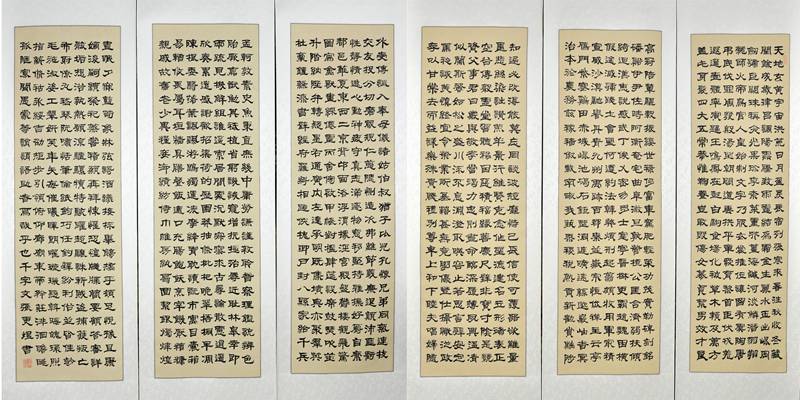 天地玄黃宇宙洪荒日月盈昃辰宿列張寒來暑往秋收冬藏
閏餘成歲律呂調陽雲騰致雨露結為霜金生麗水玉出崑岡
劍號巨闕珠稱夜光果珍李柰菜重芥薑海鹹河淡鱗潛羽翔
龍師火帝鳥官人皇始制文字乃服衣裳推位讓國有虞陶唐
弔民伐罪周發殷湯坐朝問道垂拱平章愛育黎首臣伏戎羌
遐邇壹體率賓歸王鳴鳳在樹白駒食場化被草木賴及萬方
蓋此身髮四大五常恭惟鞠養豈敢毀傷女慕貞絜男效才良
高冠陪輦驅轂振纓世祿侈富車駕肥輕策功茂實勒碑刻銘
磻溪伊尹佐時阿衡奄宅曲阜微旦孰營桓公匡合濟弱扶傾
綺迴漢惠說感武丁俊乂密勿多士寔寧晉楚更霸趙魏困橫
假途滅虢踐土會盟何遵約法韓弊煩刑起翦頗牧用軍最精
宣威沙漠馳譽丹青九州禹跡百郡秦并嶽宗恆岱禪主云亭
雁門紫塞雞田赤城昆池碣石鉅野洞庭曠遠緜邈巖岫杳冥
治本於農務茲稼穡俶載南畝我藝黍稷稅熟貢新勸賞黜陟
知過必改得能莫忘罔談彼短靡恃己長信使可覆器欲難量
墨悲絲染詩讚羔羊景行維賢剋念作聖德建名立形端表正
空谷傳聲虛堂習聽禍因惡積福緣善慶尺璧非寶寸陰是競
資父事君曰嚴與敬孝當竭力忠則盡命臨深履薄夙興溫凊
似蘭斯馨如松之盛川流不息淵澄取映容止若思言辭安定
篤初誠美慎終宜令榮業所基籍甚無竟學優登仕攝職從政
存以甘棠去而益詠樂殊貴賤禮別尊卑上和下睦夫唱婦隨
外受傅訓入奉母儀諸姑伯叔猶子比兒孔懷兄弟同氣連枝
交友投分切磨箴規仁慈隱惻造次弗離節義廉退顛沛匪虧
性靜情逸心動神疲守真志滿逐物意移堅持雅操好爵自縻
都邑華夏東西二京背邙面洛浮渭據涇宮殿盤鬱樓觀飛驚
圖寫禽獸畫彩仙靈丙舍傍啟甲帳對楹肆筵設席鼓瑟吹笙
升階納陛弁轉疑星右通廣內左達承明既集墳典亦聚群英
杜稿鍾隸漆書壁經府羅將相路俠槐卿戶封八縣家給千兵
孟軻敦素史魚秉直庶幾中庸勞謙謹敕聆音察理鑑貌辨色
貽厥嘉猷勉其祗植省躬譏誡寵增抗極殆辱近恥林皋幸即
兩疏見機解組誰逼索居閒處沉默寂寥求古尋論散慮逍遙
欣奏累遣慼謝歡招渠荷的歷園莽抽條枇杷晚翠梧桐早凋
陳根委翳落葉飄颻遊鵾獨運凌摩絳霄耽讀翫市寓目囊箱
易輶攸畏屬耳垣牆具膳餐飯適口充腸飽飫烹宰飢厭糟糠
親戚故舊老少異糧妾御績紡侍巾帷房紈扇圓絜銀燭煒煌
晝眠夕寐藍筍象床弦歌酒讌接杯舉觴矯手頓足悅豫且康
嫡後嗣續祭祀烝嘗稽顙再拜悚懼恐惶牋牒簡要顧答審詳
骸垢想浴執熱願涼驢騾犢特駭躍超驤誅斬賊盜捕獲叛亡
布射僚丸嵇琴阮嘯恬筆倫紙鈞巧任釣釋紛利俗並皆佳妙
毛施淑姿工顰妍笑年矢每催曦暉朗曜璇璣懸斡晦魄環照
指薪修祜永綏吉劭矩步引領俯仰廊廟束帶矜莊徘徊瞻眺
孤陋寡聞愚蒙等誚謂語助者焉哉乎也千字文張書